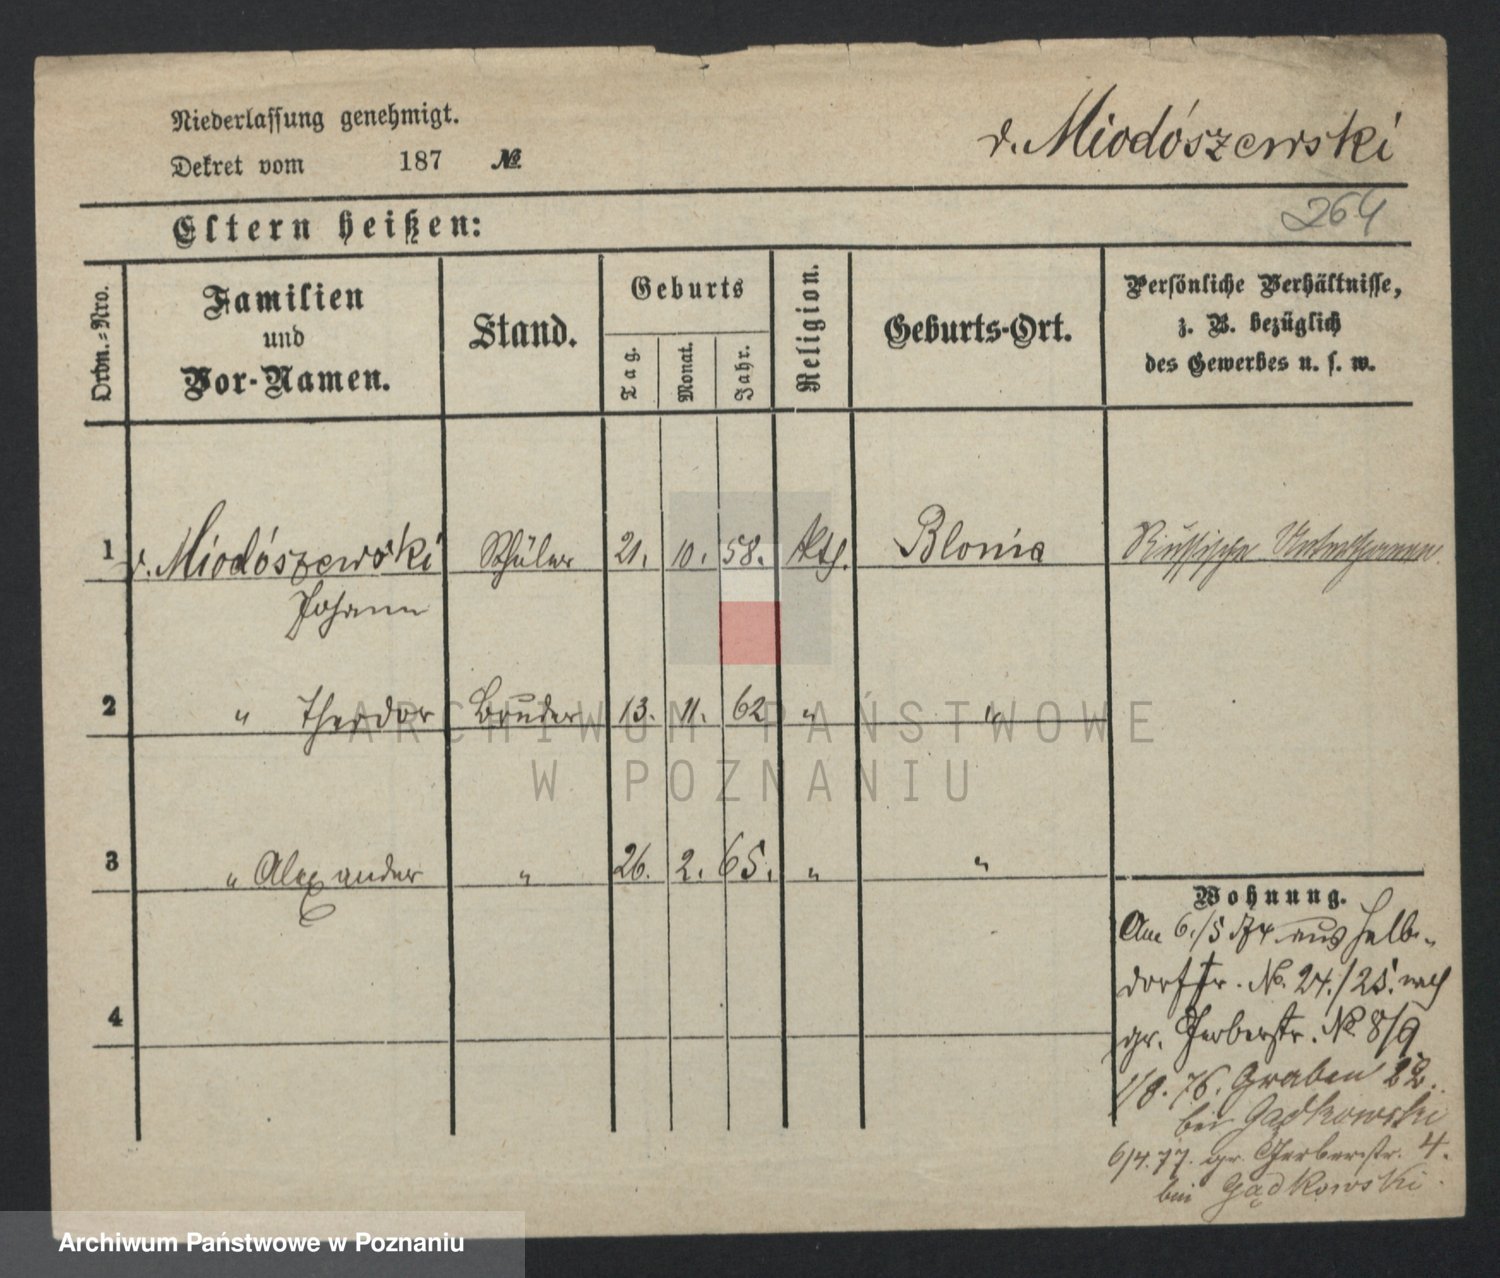 Niederlassung genehmigt.
Dekret vom 187 №
v. Miodószewski
264
Eltern heißen:
Ordn.-Nro.
Familien
und
Vor-Namen.
Stand.
Geburts
Tag.
Monat.
Jahr.
Religion.
Geburts-Ort.
Persönliche Verhältnisse,
z. B. bezüglich
des Gewerbes u. s. w.
1 v. Miodószewski Schüler 21. 10. 58. kth. Blonia Russische Unterthanen.
Johann
2 " Theodor Bruder 13. 11. 62 " "
3 " Alexander " 26. 2. 65. " "
4
Wohnung.
Am 6./5 74 aus Halb-
dorfstr. No. 24./25. nach
gr. Gerberstr. No 8/9
1/8. 76. Graben 22.
bei Gądkowski
6/4. 77. gr. Gerberstr. 4.
bei Gądkowski.
ARCHIWUM PAŃSTWOWE
W POZNANIU
Archiwum Państwowe w Poznaniu